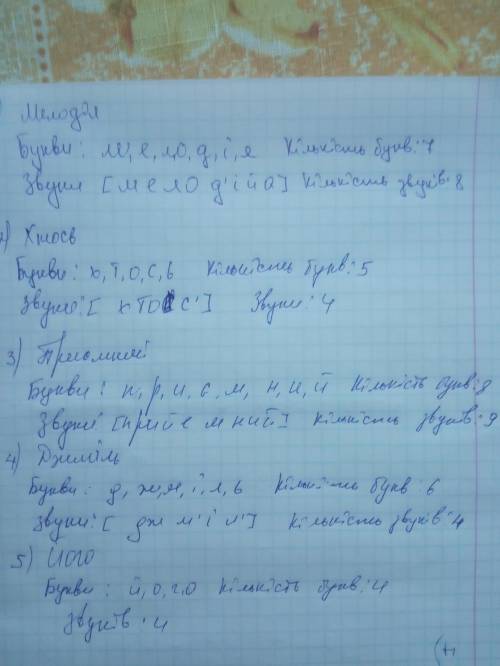 Мелодія
Букви: м, е, л, о, д, і, я Кількість букв: 7
Звуки [м е л о д' і й а] Кількість звуків: 8
2) Хтось
Букви: х, т, о, с, ь Кількість букв: 5
Звуки: [ х т о с' ] Звуки: 4
3) Приємний
Букви: п, р, и, є, м, н, и, й Кількість букв: 8
Звуки [п р и й е м н и й] Кількість звуків: 9
4) Джміль
Букви: д, ж, м, і, л, ь Кількість букв: 6
Звуки: [ дж м' і л' ] Кількість звуків: 4
5) Його
Букви: й, о, г, о Кількість букв: 4
Звуків: 4